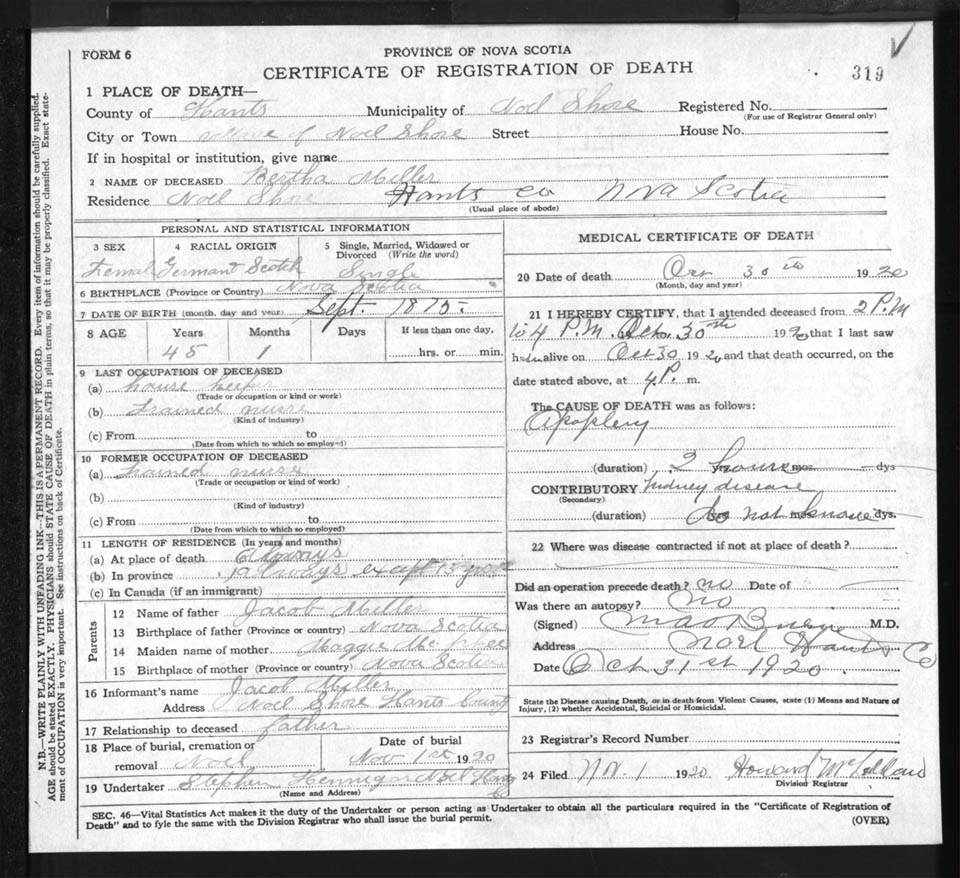 FORM 6
PROVINCE OF NOVA SCOTIA
CERTIFICATE OF REGISTRATION OF DEATH
319
1 PLACE OF DEATH—
County of Hants Municipality of Noel Shore Registered No.
(For use of Registrar General only)
City or Town village of Noel Shore Street House No.
If in hospital or institution, give name
2 NAME OF DECEASED Bertha Miller
Residence Noel Shore Hants Co Nova Scotia
(Usual place of abode)
PERSONAL AND STATISTICAL INFORMATION
3 SEX 4 RACIAL ORIGIN 5 Single, Married, Widowed or Divorced (Write the word)
Female German & Scotch Single
6 BIRTHPLACE (Province or Country) Nova Scotia
7 DATE OF BIRTH (month, day and year) Sept. 1875
8 AGE Years Months Days If less than one day,
45 1 hrs. or min.
9 LAST OCCUPATION OF DECEASED
(a) house keeper
(Trade or occupation or kind or work)
(b) trained nurse
(Kind of industry)
(c) From to
(Date from which to which so employed)
10 FORMER OCCUPATION OF DECEASED
(a) trained nurse
(Trade or occupation or kind of work)
(b)
(Kind of industry)
(c) From to
(Date from which to which so employed)
11 LENGTH OF RESIDENCE (In years and months)
(a) At place of death Always
(b) In province Always except 15 years
(c) In Canada (if an immigrant)
Parents
12 Name of father Jacob Miller
13 Birthplace of father (Province or country) Nova Scotia
14 Maiden name of mother Maggie
15 Birthplace of Mother (Province or country) Nova Scotia
16 Informant's name Jacob Miller
Address Noel Shore Hants County
17 Relationship to deceased father
18 Place of burial, cremation or removal Noel Date of burial Nov 1st 1920
19 Undertaker Stephen Hennigar Noel Hants Co
(Name and Address)
MEDICAL CERTIFICATE OF DEATH
20 Date of death Oct 30th 1920
(Month, day and year)
21 I HEREBY CERTIFY, that I attended deceased from 2 P.M
to 4 P.M. Oct 30th 1920 that I last saw
her alive on Oct 30 1920 and that death occurred, on the
date stated above, at 4 P. m.
The CAUSE OF DEATH was as follows:
Apoplexy
(duration) 2 hours mos. dys
CONTRIBUTORY Kidney disease
(Secondary)
(duration) do not know dys.
22 Where was disease contracted if not at place of death?
Did an operation precede death? no Date of
Was there an autopsy? no
(Signed) M.D.
Address Noel Hants Co
Date Oct 31st 1920.
State the Disease causing Death, or in death from Violent Causes, state (1) Means and Nature of
Injury, (2) whether Accidental, Suicidal or Homicidal.
23 Registrar's Record Number
24 Filed Nov. 1 1920 Howard McLellan
Division Registrar
SEC. 46—Vital Statistics Act makes it the duty of the Undertaker or person acting as Undertaker to obtain all the particulars required in the "Certificate of Registration of
Death" and to fyle the same with the Division Registrar who shall issue the burial permit.
(OVER)
N.B.—WRITE PLAINLY WITH UNFADING INK—THIS IS A PERMANENT RECORD. Every item of information should be carefully supplied.
AGE should be stated EXACTLY. PHYSICIANS should STATE CAUSE OF DEATH in plain terms, so that it may be properly classified. Exact state-
ment of OCCUPATION is very important. See instructions on back of Certificate.